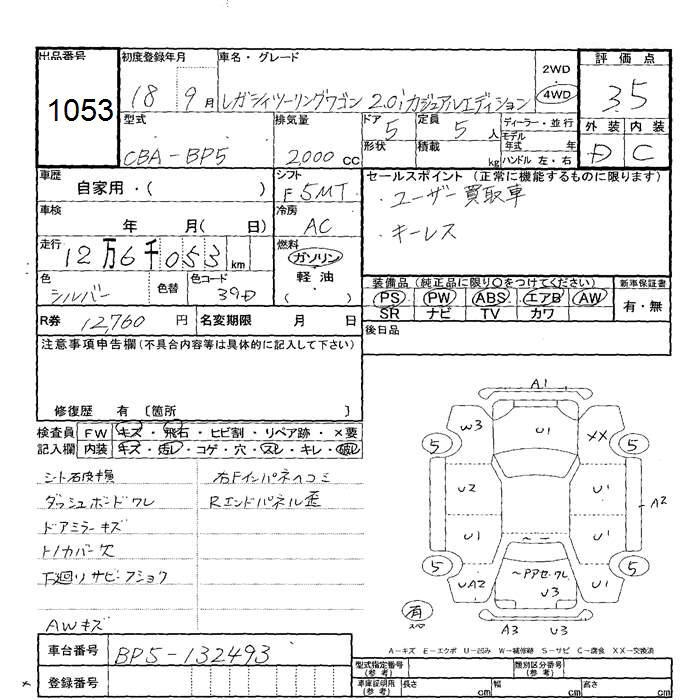 出品番号 初度登録年月 車名・グレード 評価点
1053 18 9月 レガシィツーリングワゴン 2.0i カジュアルエディション 2WD 4WD 3.5
型式 排気量 ドア 定員 ディーラー・並行 外装 内装
CBA-BP5 2000cc 5 5人 モデル年式 年 D C
形状 積載 kg ハンドル 左・右
車歴 シフト セールスポイント (正常に機能するものに限ります)
自家用・( ) F 5MT ・ユーザー買取車
車検 冷房
年 月( 日) AC ・キーレス
走行 燃料
12万6千053km ガソリン
色 色替 色コード 軽油 装備品 (純正品に限り○をつけてください) 新車保証書
シルバー 39D ( ) PS PW ABS エアB AW 有・無
SR ナビ TV カワ
R券 12,760円 名変期限 月 日 後日品
注意事項申告欄(不具合内容等は具体的に記入して下さい)
修復歴 有 〔箇所 〕
検査員 FW キズ・飛石・ヒビ割・リペア跡・×要
記入欄 内装 キズ・汚レ・コゲ・穴・スレ・キレ・破レ
シート石皮損 右Fインパネヘコミ
ダッシュボードワレ Rエンドパネル歪
ドアミラーキズ
トノカバー欠
下廻りサビ・フショク
AWキズ
A1
W3 U1 XX
5 5
U2 U1 A2
U1 U1
5 5
UA2 ～アアセ・ワレ U3 U1
有 スペア A3 U3
A-キズ E-エクボ U-凹み W-補修跡 S-サビ C-腐食 XX-交換済
車台番号 BP5-132493
登録番号
型式指定番号(参考) 類別区分番号(参考)
車庫証明用(参考) 長さ cm 幅 cm 高さ cm